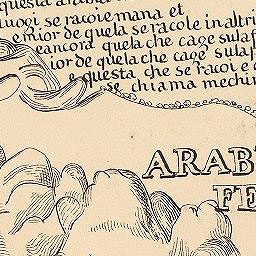 questa arabia
luogi se racoie mana et
emior de quela se racole in altri
eancora quela che cage sulaf
ior de quela che cage sulap
e questa che se racoi e c
se chiama mechin
ARAB
FE